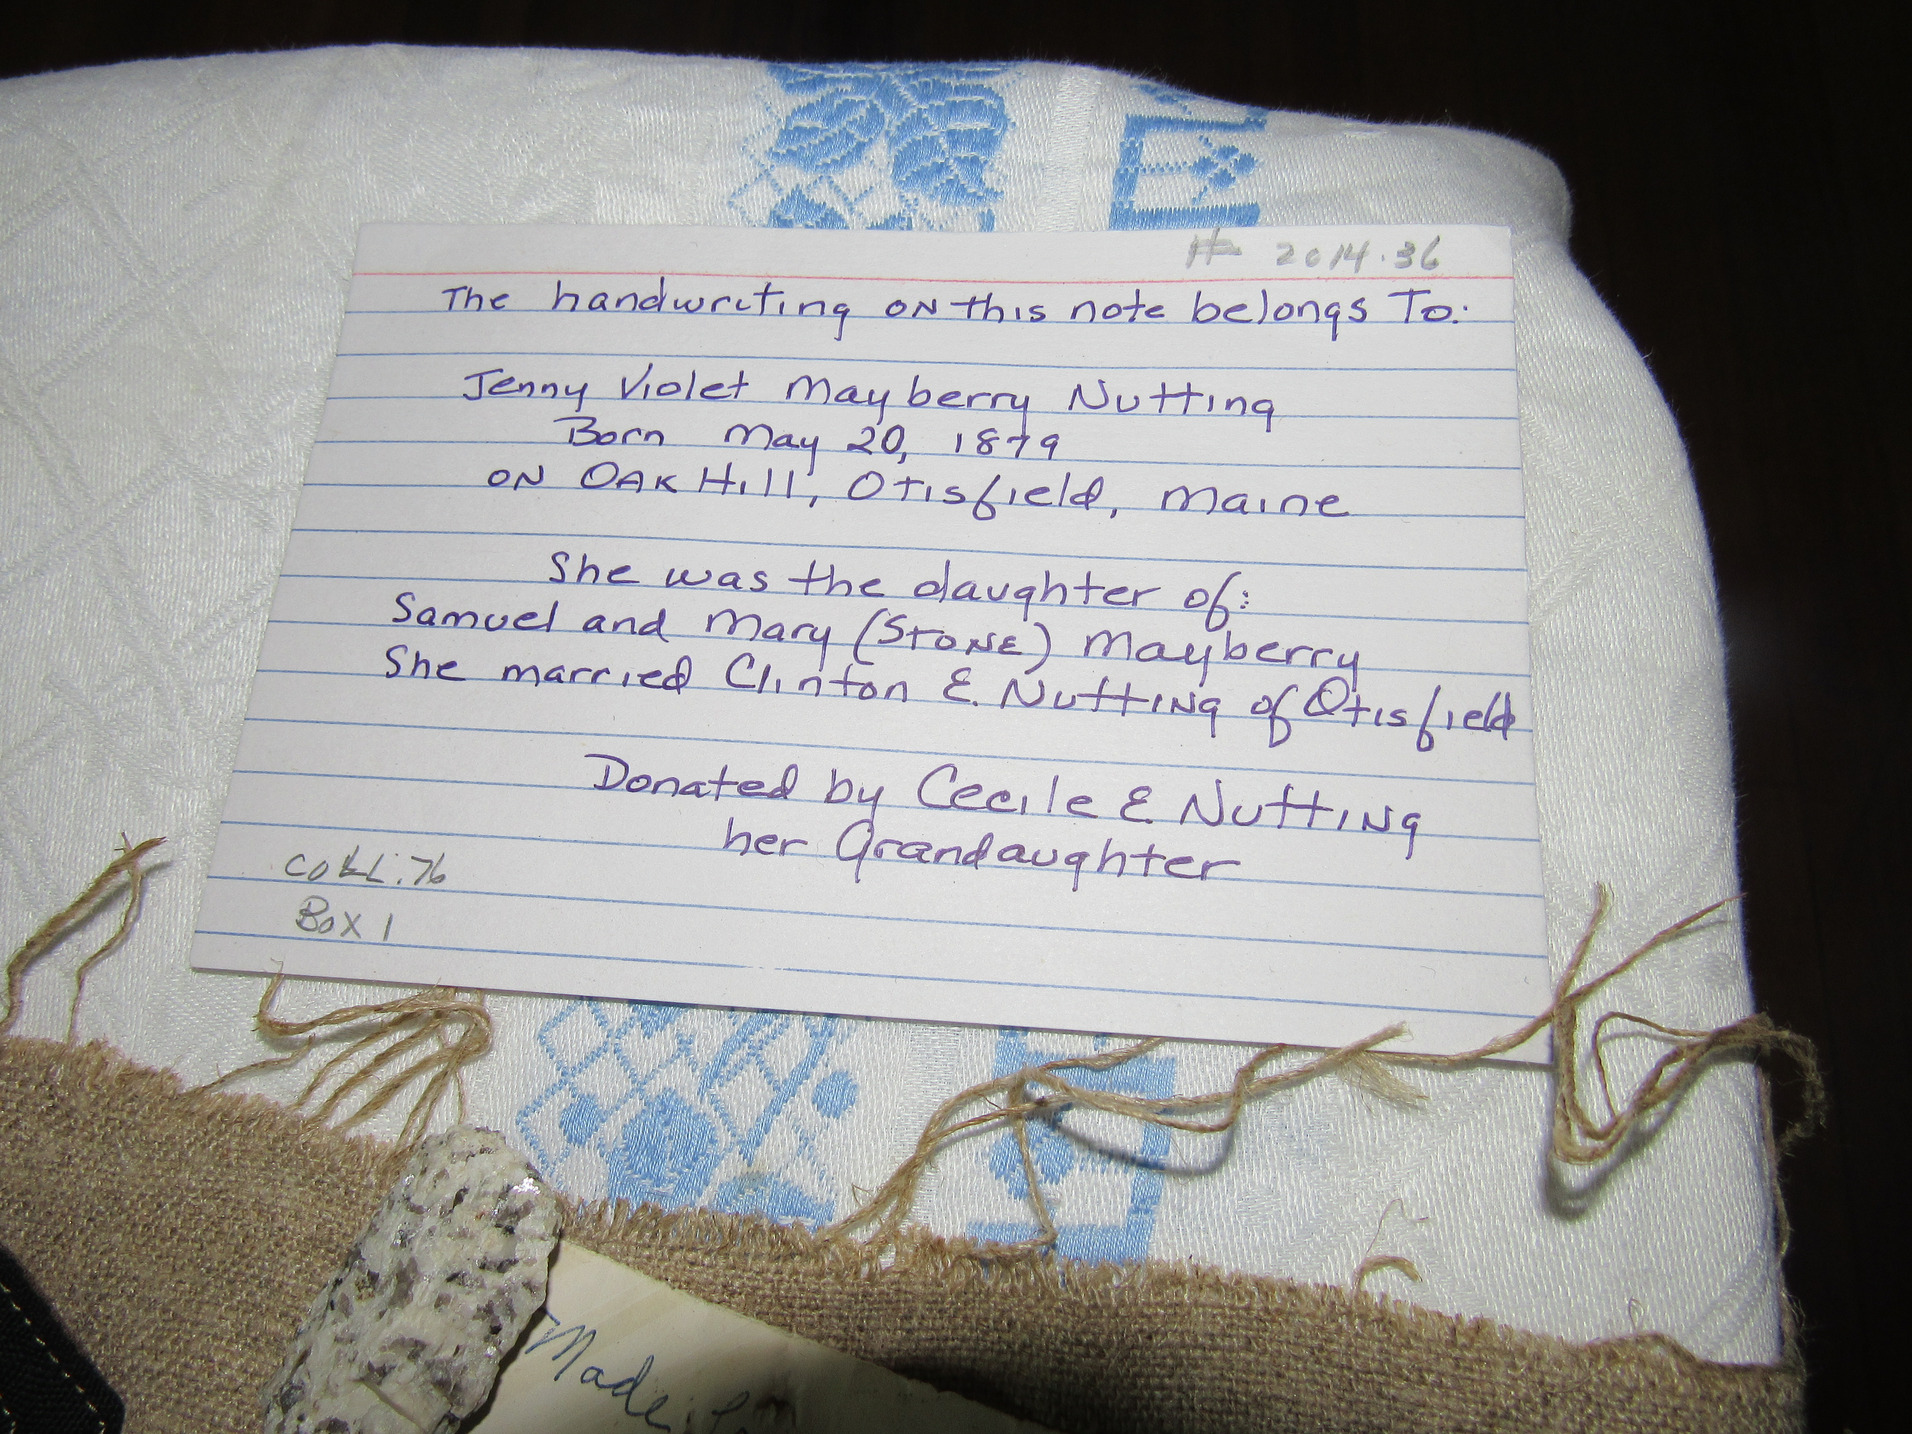 # 2014.36
The handwriting on this note belongs To:
Jenny Violet Mayberry Nutting
Born May 20, 1879
on Oak Hill, Otisfield, Maine
She was the daughter of:
Samuel and Mary (Stone) Mayberry
She married Clinton E. Nutting of Otisfield
Donated by Cecile E Nutting
her Grandaughter
Box 1
Made